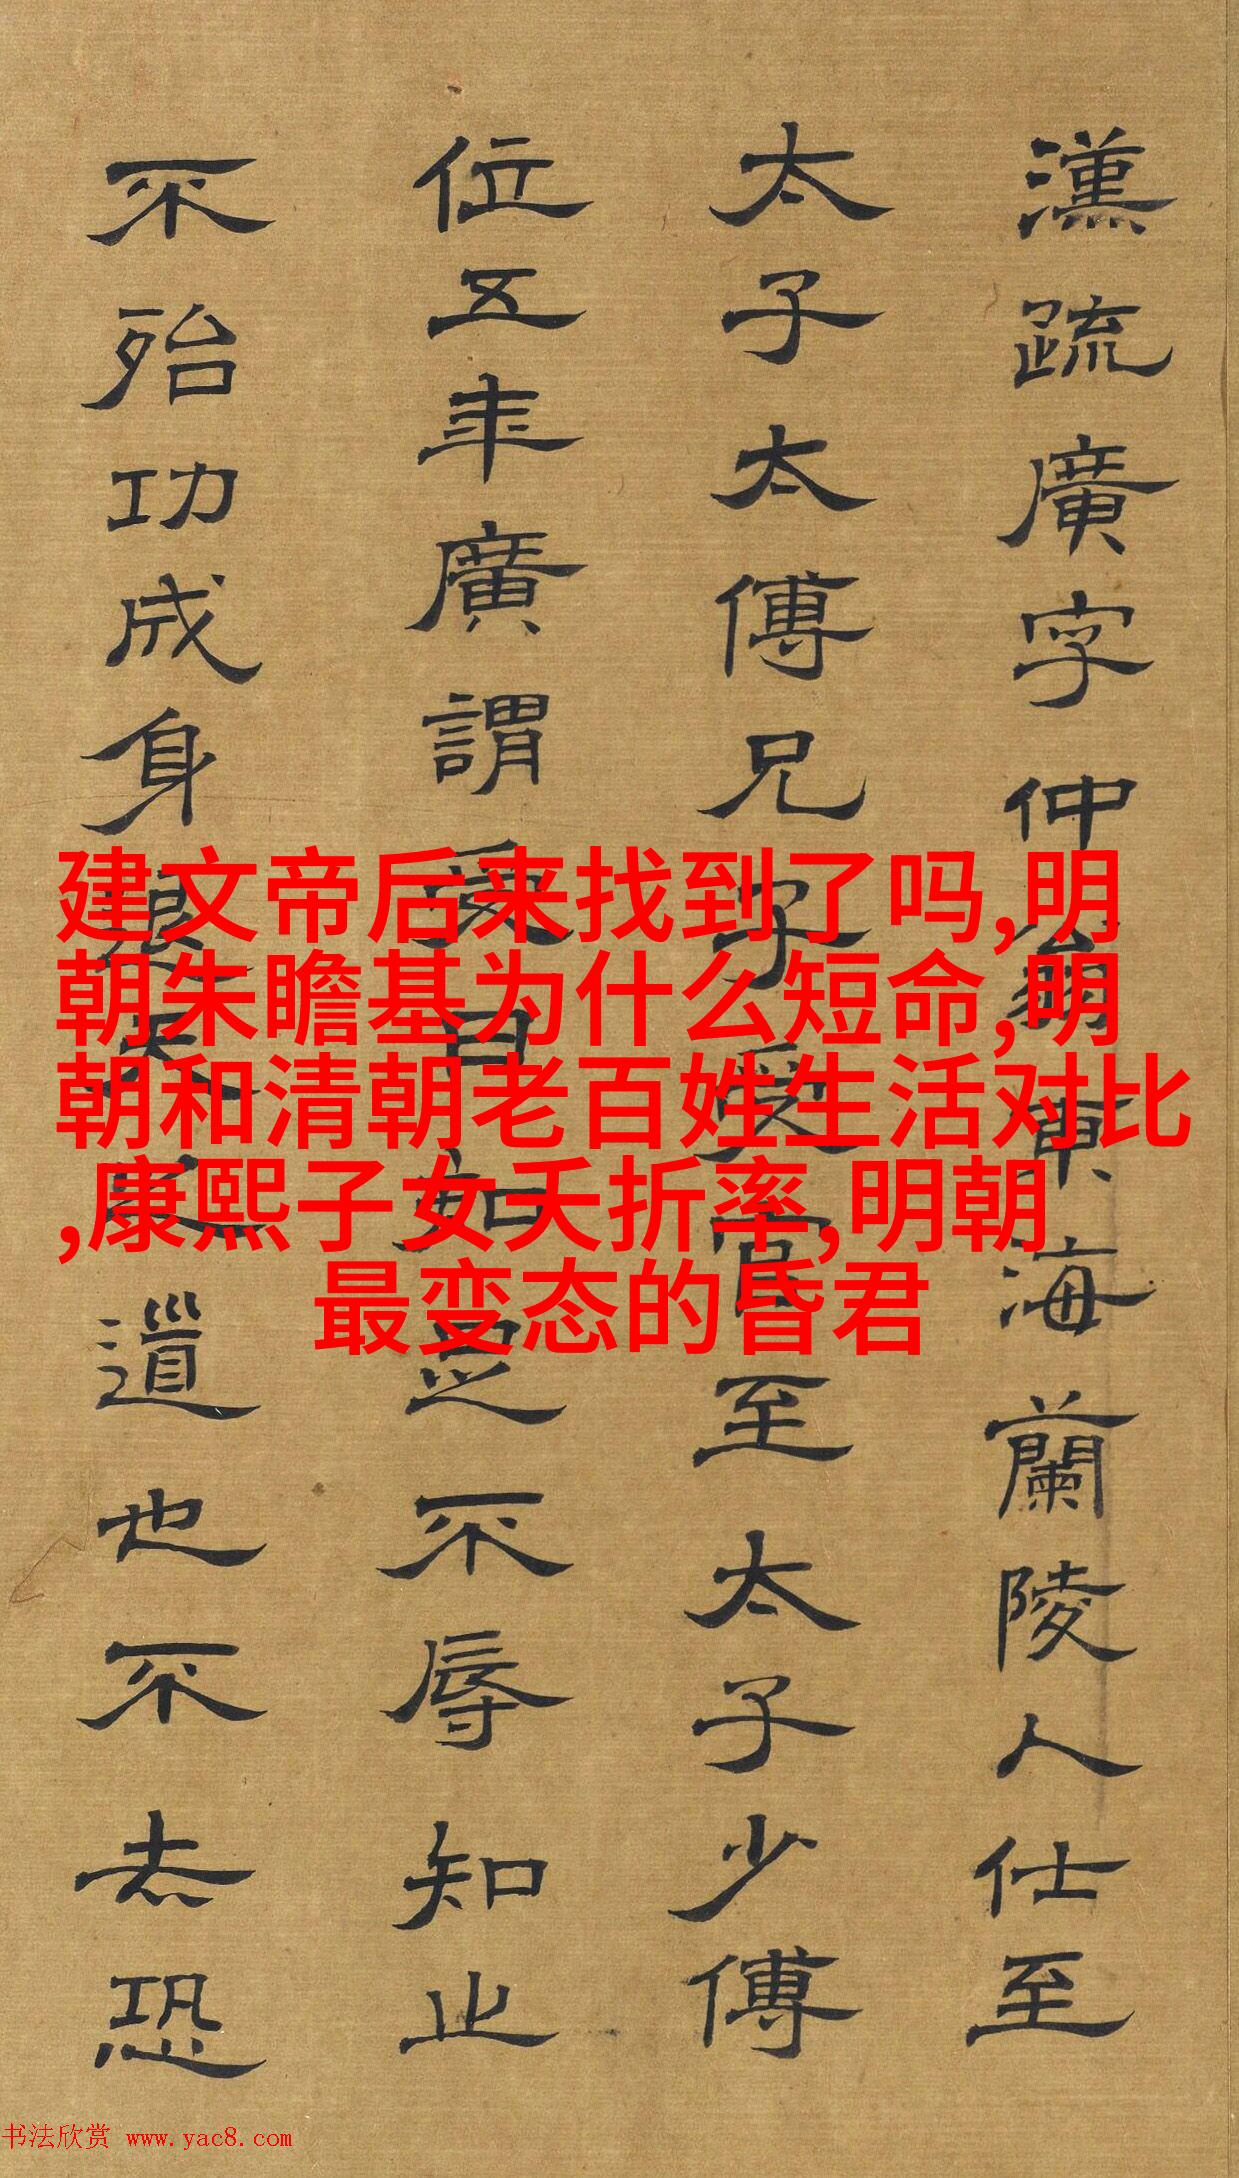 漢疏廣字仲翁東海蘭陵人仕至
太子太傅兄子受官至太子少傅
位五年廣謂受曰知足不辱知止
不殆功成身退天之道也不去恐
建文帝后来找到了吗,明
朝朱瞻基为什么短命,明
朝和清朝老百姓生活对比
,康熙子女夭折率,明朝
最变态的昏君
书法欣赏 www.yac8.com